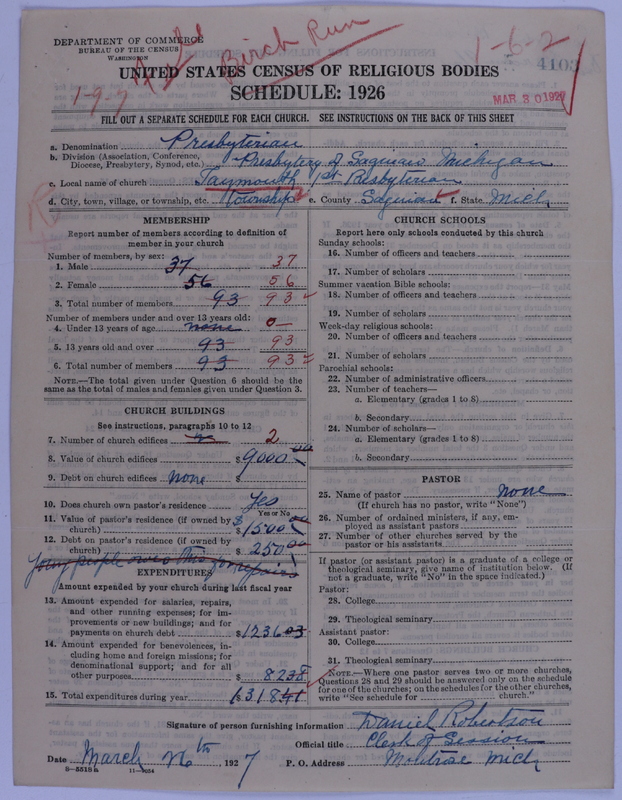 DEPARTMENT OF COMMERCE
BUREAU OF THE CENSUS
WASHINGTON
Birch Run
1-6-2
4103
1-9-9
UNITED STATES CENSUS OF RELIGIOUS BODIES
SCHEDULE: 1926
MAR 30 1927
FILL OUT A SEPARATE SCHEDULE FOR EACH CHURCH. SEE INSTRUCTIONS ON THE BACK OF THIS SHEET
a. Denomination Presbyterian
b. Division (Association, Conference, Diocese, Presbytery, Synod, etc.) Presbytery of Saginaw Michigan
c. Local name of church Taymouth 1st Presbyterian
d. City, town, village, or township, etc. Township e. County Saginaw f. State Mich
MEMBERSHIP
Report number of members according to definition of
member in your church
Number of members, by sex:
1. Male 37 37
2. Female 56 56
3. Total number of members 93 93
Number of members under and over 13 years old:
4. Under 13 years of age none 0
5. 13 years old and over 93 93
6. Total number of members 93 93
NOTE.—The total given under Question 6 should be the
same as the total of males and females given under Question 3.
CHURCH BUILDINGS
See instructions, paragraphs 10 to 12
7. Number of church edifices 2
8. Value of church edifices $9000 00
9. Debt on church edifices none $
10. Does church own pastor's residence Yes
Yes or No
11. Value of pastor's residence (if owned by
church) $1500 00
12. Debt on pastor's residence (if owned by
church) $250 00
Young people owe this for repairs
EXPENDITURES
Amount expended by your church during last fiscal year
13. Amount expended for salaries, repairs,
and other running expenses; for im-
provements or new buildings; and for
payments on church debt $1236 03
14. Amount expended for benevolences, in-
cluding home and foreign missions; for
denominational support; and for all
other purposes $ 82 38
15. Total expenditures during year $1318 41
CHURCH SCHOOLS
Report here only schools conducted by this church
Sunday schools:
16. Number of officers and teachers
17. Number of scholars
Summer vacation Bible schools:
18. Number of officers and teachers
19. Number of scholars
Week-day religious schools:
20. Number of officers and teachers
21. Number of scholars
Parochial schools:
22. Number of administrative officers
23. Number of teachers—
a. Elementary (grades 1 to 8)
b. Secondary
24. Number of scholars—
a. Elementary (grades 1 to 8)
b. Secondary
PASTOR
25. Name of pastor none
(If church has no pastor, write "None")
26. Number of ordained ministers, if any, em-
ployed as assistant pastors
27. Number of other churches served by the
pastor or his assistants
If pastor (or assistant pastor) is a graduate of a college or
theological seminary, give name of institution below. (If
not a graduate, write "No" in the space indicated.)
Pastor:
28. College
29. Theological seminary
Assistant pastor:
30. College
31. Theological seminary
NOTE.—Where one pastor serves two or more churches,
Questions 28 and 29 should be answered only on the schedule
for one of the churches; on the schedules for the other churches,
write "See schedule for church."
Signature of person furnishing information Daniel Robertson
Official title Clerk of Session
Date March 26th 1927 P. O. Address Montrose Mich
8—5518a 11—9624